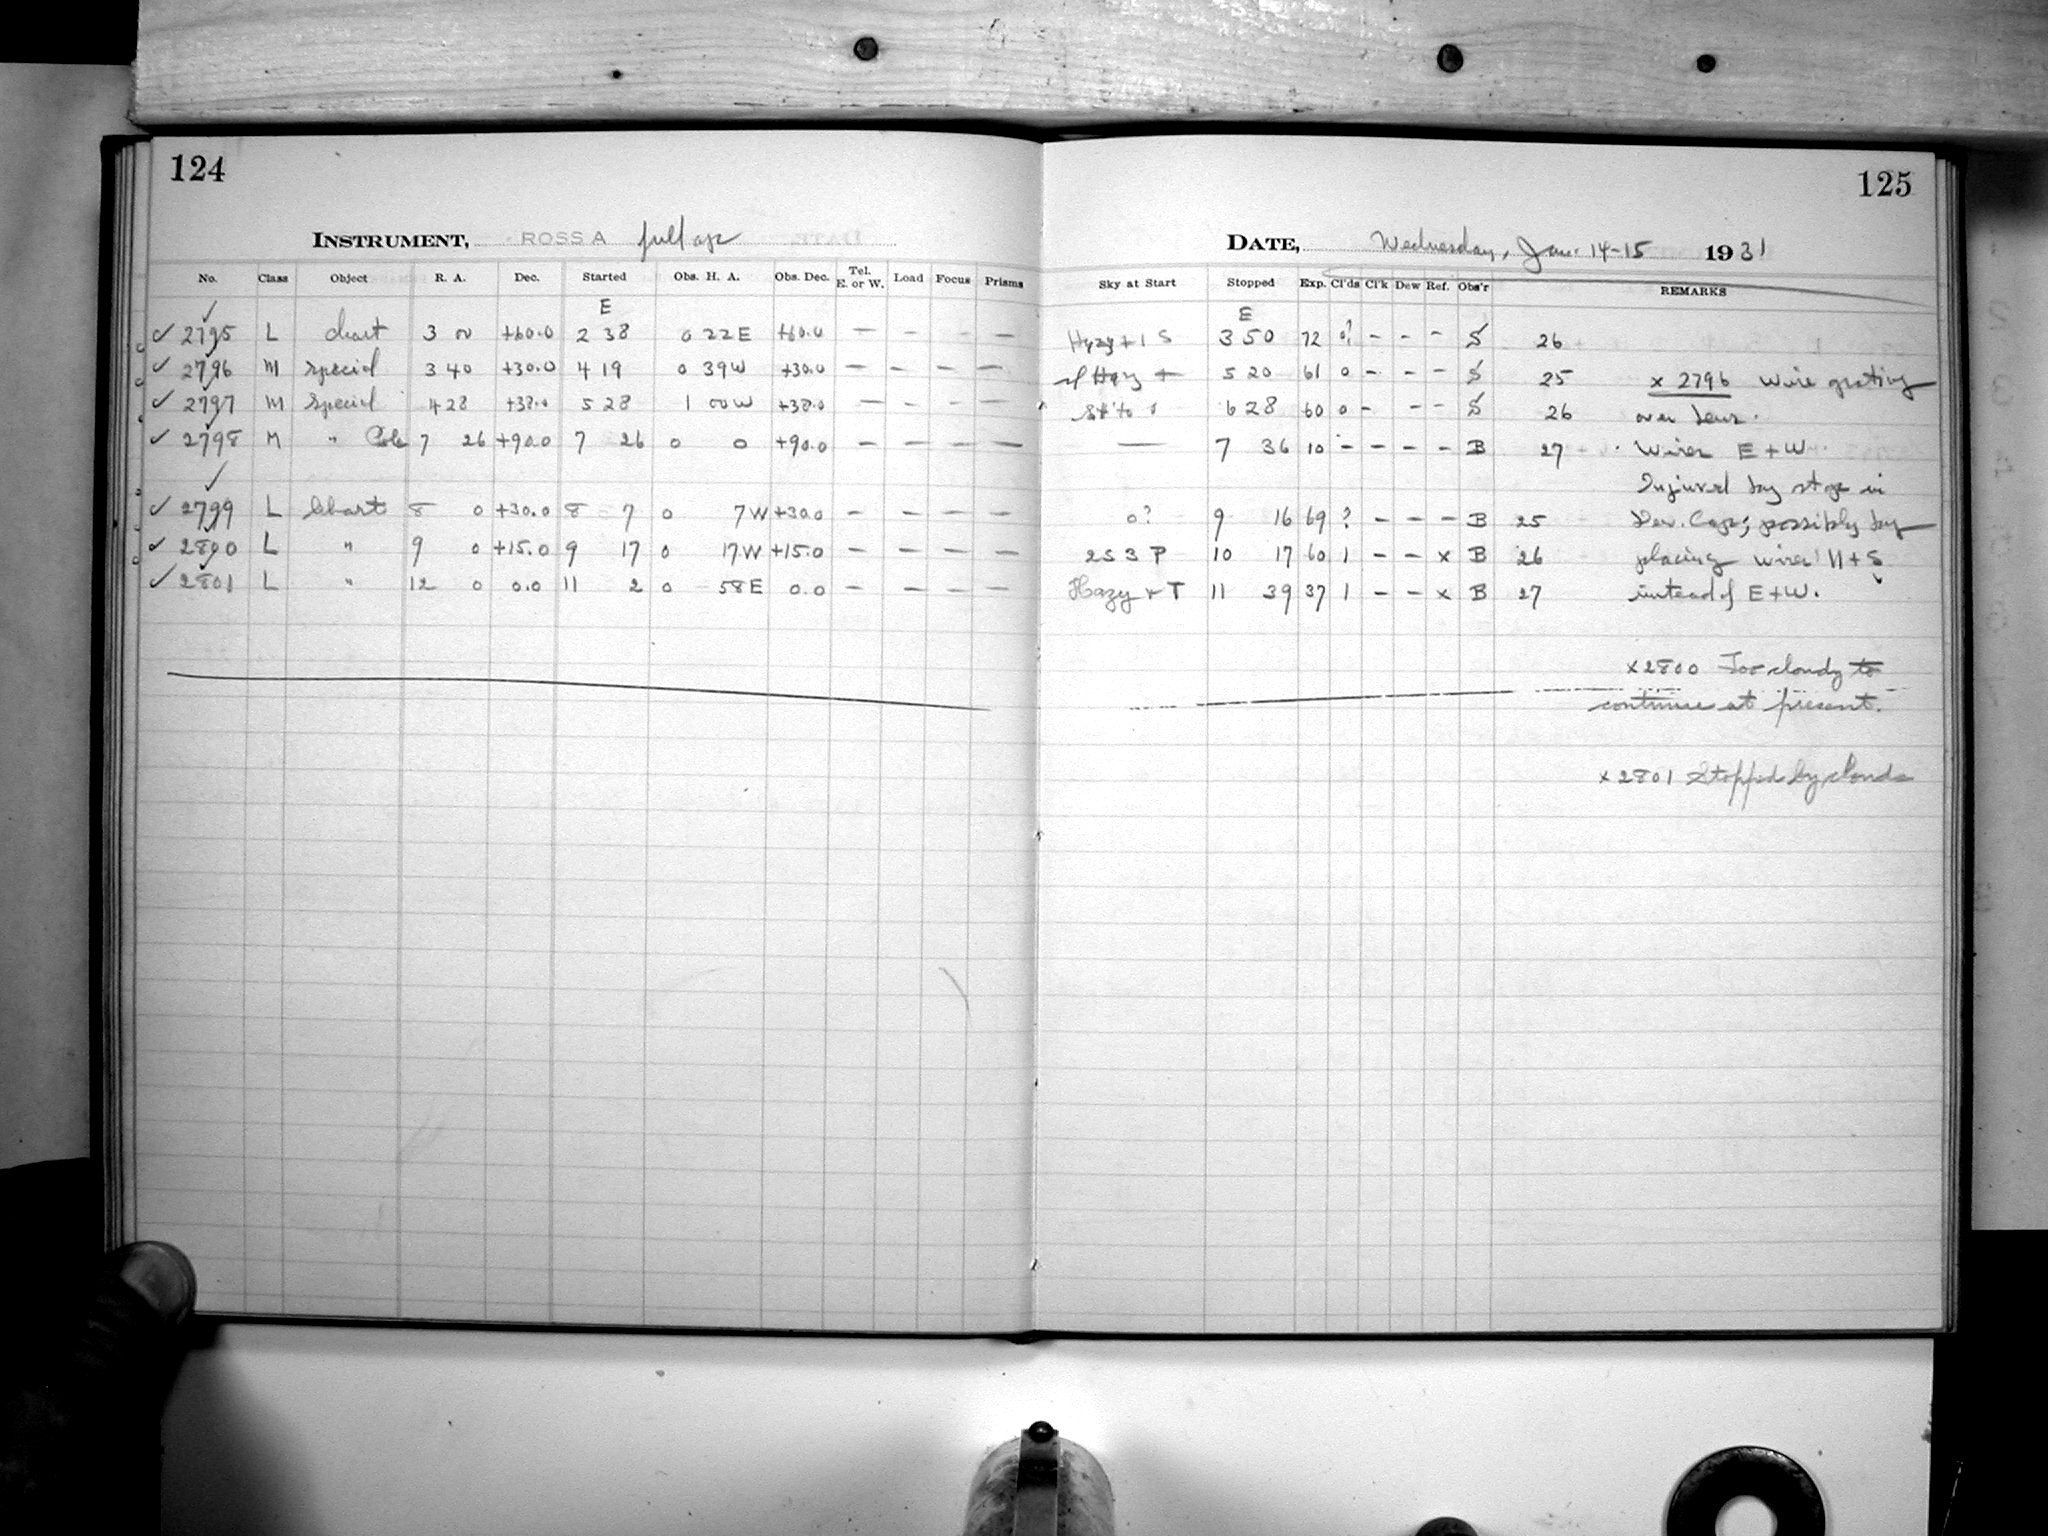 124
125
INSTRUMENT, ROSS A full ap
DATE, Wednesday, Jan. 14-15 1931
No. Class Object R. A. Dec. Started Obs. H. A. Obs. Dec. Tel. E. or W. Load Focus Prisms Sky at Start Stopped Exp. Cl'ds Cl'k Dew Ref. Obs'r REMARKS
E E
✓ 2795 L chart 3 00 +60.0 2 38 0 22 E +60.0 — — — Hazy + 1 S 3 50 72 0? - - - S 26
✓ 2796 M special 3 40 +30.0 4 19 0 39 W +30.0 — — — — sl Hazy + 5 20 61 0 - - - S 25 x 2796 Wire grating
✓ 2797 M special 4 28 +38.0 5 28 1 00 W +38.0 — — — — 6 28 60 0 - - - S 26 over lens.
✓ 2798 M " Pole 7 26 +90.0 7 26 0 0 +90.0 — — — — — 7 36 10 - - - - B 27 Wires E + W.
Injured by stop in
✓ 2799 L Chart 8 0 +30.0 8 7 0 7 W +30.0 — — — — 0? 9 16 69 ? - - - B 25 Dew. Cap; possibly by
✓ 2800 L " 9 0 +15.0 9 17 0 17 W +15.0 — — — — 2 S 3 P 10 17 60 1 - - x B 26 placing wires N + S
✓ 2801 L " 12 0 0.0 11 2 0 58 E 0.0 — — — — Hazy + T 11 39 37 1 - - x B 27 instead of E + W.
x 2800 Too cloudy to
continue at present.
x 2801 Stopped by clouds